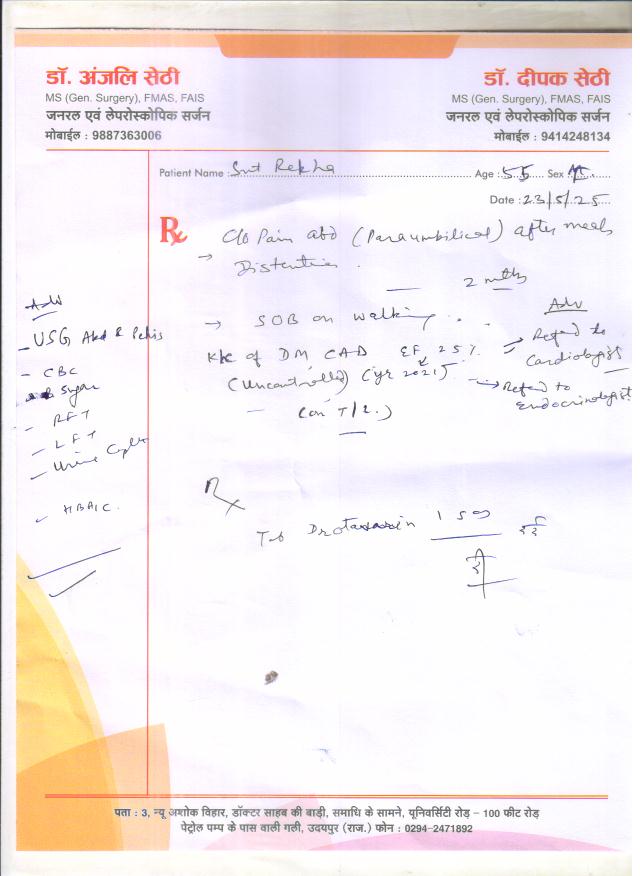 डॉ. अंजलि सेठी
MS (Gen. Surgery), FMAS, FAIS
जनरल एवं लेपरोस्कोपिक सर्जन
मोबाईल : 9887363006
डॉ. दीपक सेठी
MS (Gen. Surgery), FMAS, FAIS
जनरल एवं लेपरोस्कोपिक सर्जन
मोबाईल : 9414248134
Patient Name : Smt Rekha Age : 55 Sex
Date : 23/5/25
Rx
C/o Pain abd (Paraumbilical) after meals
→ Distention
2 mths
→ SOB on walking
K/c of DM CAD EF 25%
(Uncontrolled) (yr 2021)
(on T/t.)
Adv
→ Refer to
Cardiologist
→ Refer to
Endocrinologist
Adv
- USG Abd & Pelvis
- CBC
- Sugar
- RFT
- LFT
- Urine
- HBA1C.
Rx
Tab 1
पता : 3, न्यू अशोक विहार, डॉक्टर साहब की बाड़ी, समाधि के सामने, यूनिवर्सिटी रोड़ – 100 फीट रोड़
पेट्रोल पम्प के पास वाली गली, उदयपुर (राज.) फोन : 0294-2471892